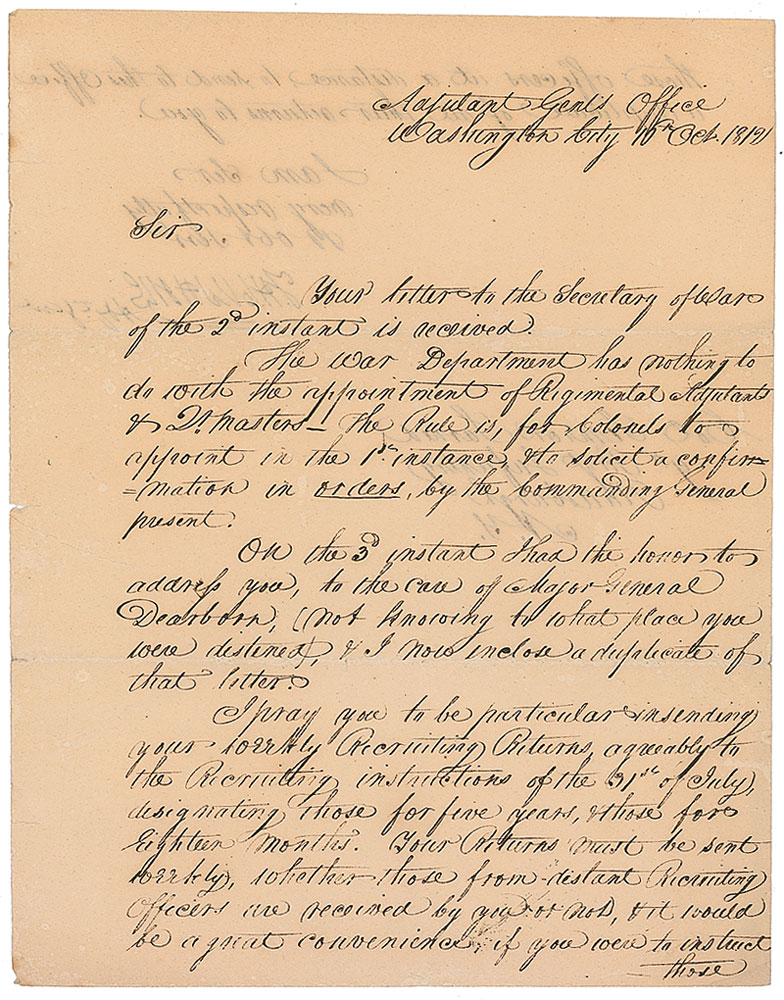 Adjutant Genl's Office
Washington City 10th Oct. 1812
Sir
Your letter to the Secretary of War
of the 2d instant is received.
The War Department has nothing to
do with the appointment of Regimental Adjutants
& Qr Masters — The Rule is, for Colonels to
appoint in the 1st instance, & to solicit a confir=
=mation in orders, by the Commanding General
present.
On the 3d instant I had the honor to
address you, to the care of Major General
Dearborn, (not knowing to what place you
were distened), & I now inclose a duplicate of
that letter.
I pray you to be particular in sending
your weekly Recruiting Returns, agreeably to
the Recruiting instructions of the 31st of July,
designating those for five years, & those for
Eighteen Months. Your Returns must be sent
weekly, whether those from distant Recruiting
Officers are received by you or not, & it would
be a great convenience, if you were to instruct
those